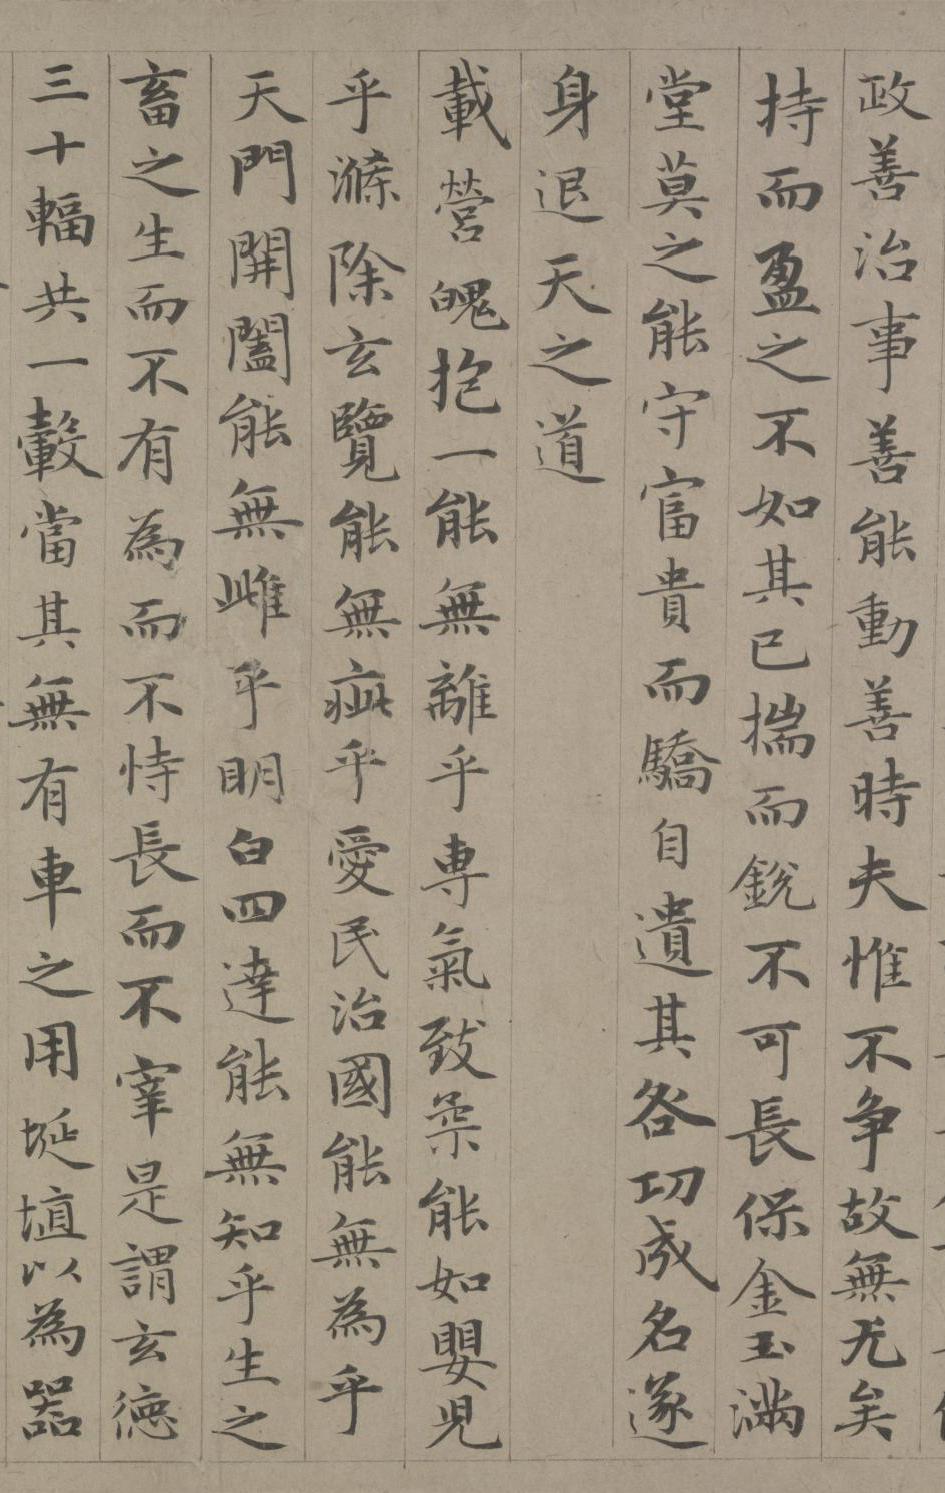 政善治事善能動善時夫惟不争故無尤矣
持而盈之不如其已揣而銳不可長保金玉滿
堂莫之能守富貴而驕自遺其咎功成名遂
身退天之道
載營魄抱一能無離乎専氣致柔能如嬰児
乎滌除玄覽能無疵乎愛民治國能無為乎
天門開闔能無雌乎明白四達能無知乎生之
畜之生而不有為而不恃長而不宰是謂玄德
三十輻共一轂當其無有車之用埏埴以為器